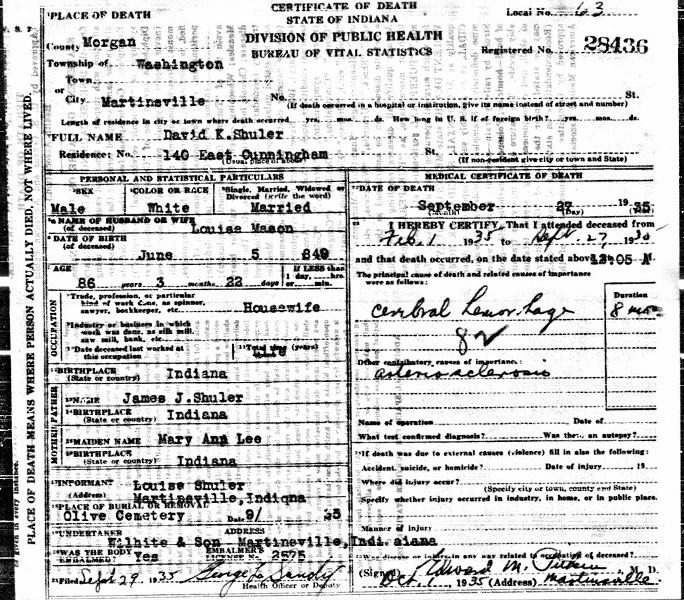 CERTIFICATE OF DEATH
STATE OF INDIANA
DIVISION OF PUBLIC HEALTH
BUREAU OF VITAL STATISTICS
Local No. 63
Registered No. 28436
PLACE OF DEATH
County Morgan
Township of Washington
Town
or
City Martinsville No. St.
(If death occurred in a hospital or institution, give its name instead of street and number)
Length of residence in city or town where death occurred yrs. mos. ds. How long in U. S. if of foreign birth? yrs. mos. ds.
FULL NAME David K.Shuler
Residence: No. 140 East Cunningham St.
(Usual place of abode) (If non-resident give city or town and State)
PERSONAL AND STATISTICAL PARTICULARS
SEX COLOR OR RACE Single, Married, Widowed or Divorced (write the word)
Male White Married
NAME OF HUSBAND OR WIFE
(of deceased) Louise Mason
DATE OF BIRTH
(of deceased) June 5 849
AGE IF LESS than
1 day, hrs.
86 years 3 months 22 days or min.
OCCUPATION
Trade, profession, or particular
kind of work done, as spinner,
sawyer, bookkeeper, etc. Housewife
Industry or business in which
work was done, as silk mill,
saw mill, bank, etc.
Date deceased last worked at
this occupation Total time (years) Life
BIRTHPLACE
(State or country) Indiana
FATHER
NAME James J.Shuler
BIRTHPLACE
(State or country) Indiana
MOTHER
MAIDEN NAME Mary Ann Lee
BIRTHPLACE
(State or country) Indiana
INFORMANT Louise Shuler
(Address) Martinsville,Indiqna
PLACE OF BURIAL OR REMOVAL
Olive Cemetery Date 9/ 35
UNDERTAKER ADDRESS
Wilhite & Son Martineville,Indi.aiana
WAS THE BODY
EMBALMED? Yes EMBALMER'S
LICENSE No. 2575
Filed Sept 29, 1935 George L. Sandy
Health Officer or Deputy
MEDICAL CERTIFICATE OF DEATH
DATE OF DEATH
September 27 1935
(Month) (Day) (Year)
I HEREBY CERTIFY, That I attended deceased from
Feb. 1 1935 to Sept. 27, 1935
and that death occurred, on the date stated above 12:05 M
The principal cause of death and related causes of importance
were as follows: Duration
Cerebral hemorrhage 8 mos
82
Other contributory causes of importance:
arteriosclerosis
Name of operation Date of
What test confirmed diagnosis? Was there an autopsy?
If death was due to external causes (violence) fill in also the following:
Accident, suicide, or homicide? Date of injury 19
Where did injury occur?
(Specify city or town, county and State)
Specify whether injury occurred in industry, in home, or in public place.
Manner of injury
Was disease or injury in any way related to occupation of deceased?
(Signed) Edward M. M. D.
Oct. 1, 1935 (Address) Martinsville
PLACE OF DEATH MEANS WHERE PERSON ACTUALLY DIED, NOT WHERE LIVED.